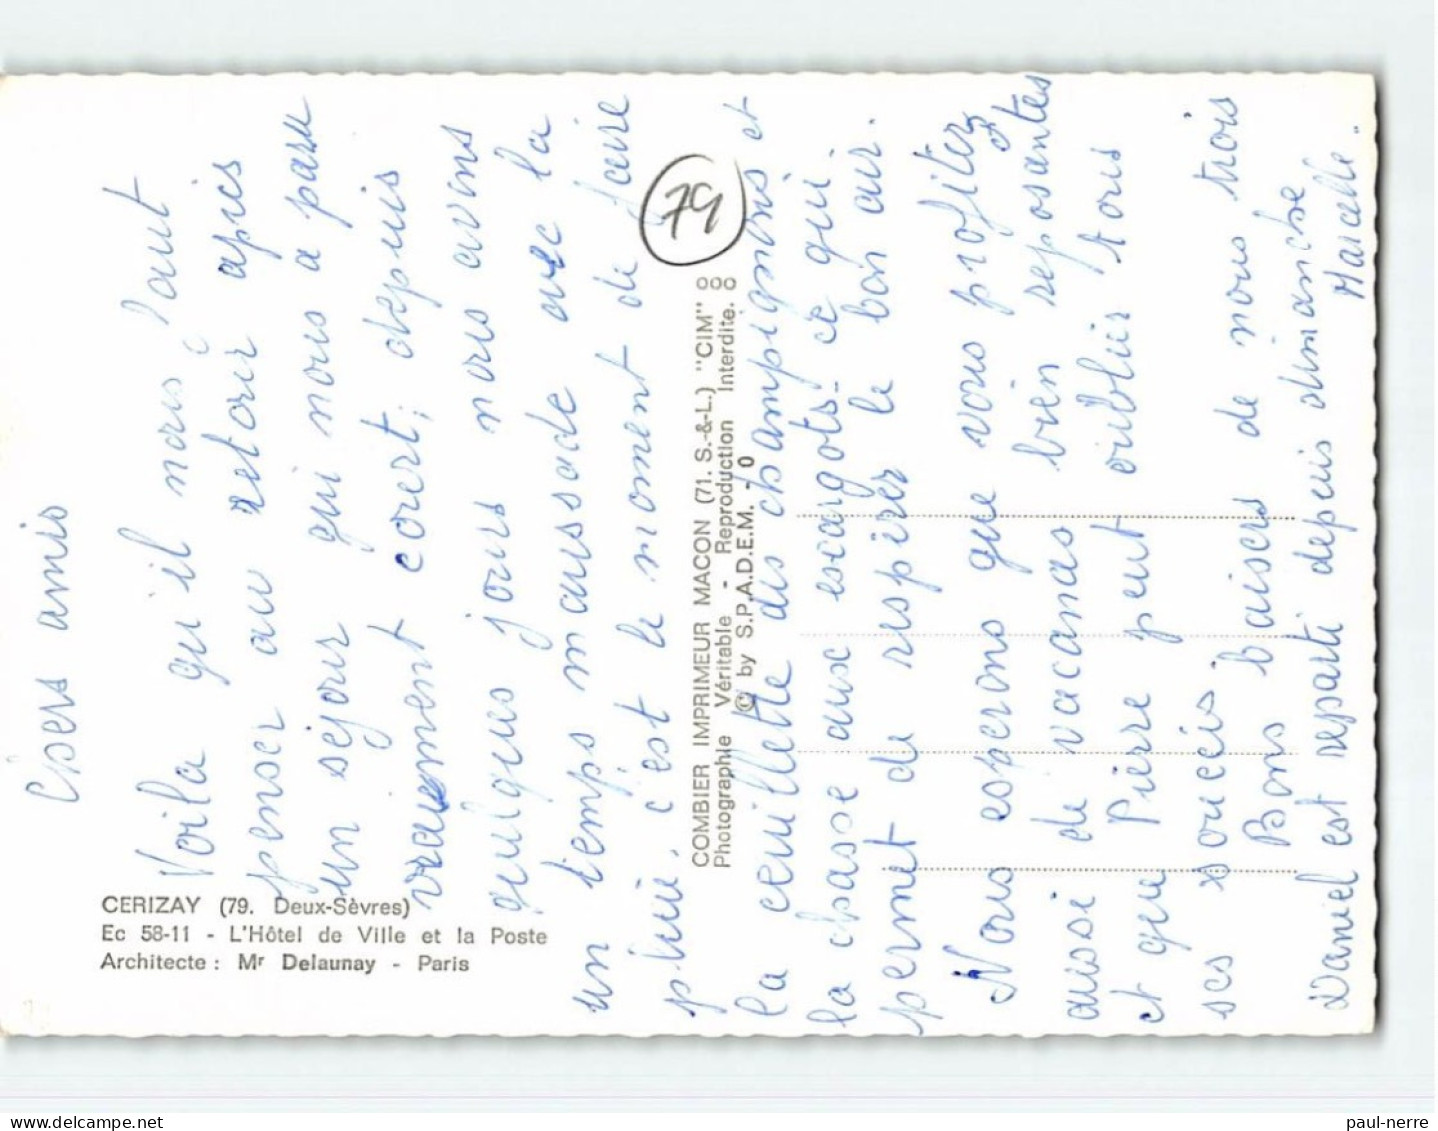 Chers amis
Voila qu'il nous faut
penser au retour après
un séjour qui nous a paru
vraiment court, depuis
quelques jours nous avons
un temps maussade avec la
pluie. c'est le moment de faire
la ceuillette des champignons et
la chasse aux escargots - ce qui
permet de respirer le bon air.
Nous esperons que vous profitez
aussi de vacances bien reposantes
et que Pierre peut oublier tous
ses soucis.
Bons baisers de nous trois
Daniel est reparti depuis dimanche
Marcelle.
79
CERIZAY (79. Deux-Sèvres)
Ec 58-11 - L'Hôtel de Ville et la Poste
Architecte : Mr Delaunay - Paris
COMBIER IMPRIMEUR MACON (71. S.-&-L.) "CIM"
Photographie Véritable - Reproduction Interdite.
© by S.P.A.D.E.M. - 0
delcampe.net
paul-nerre